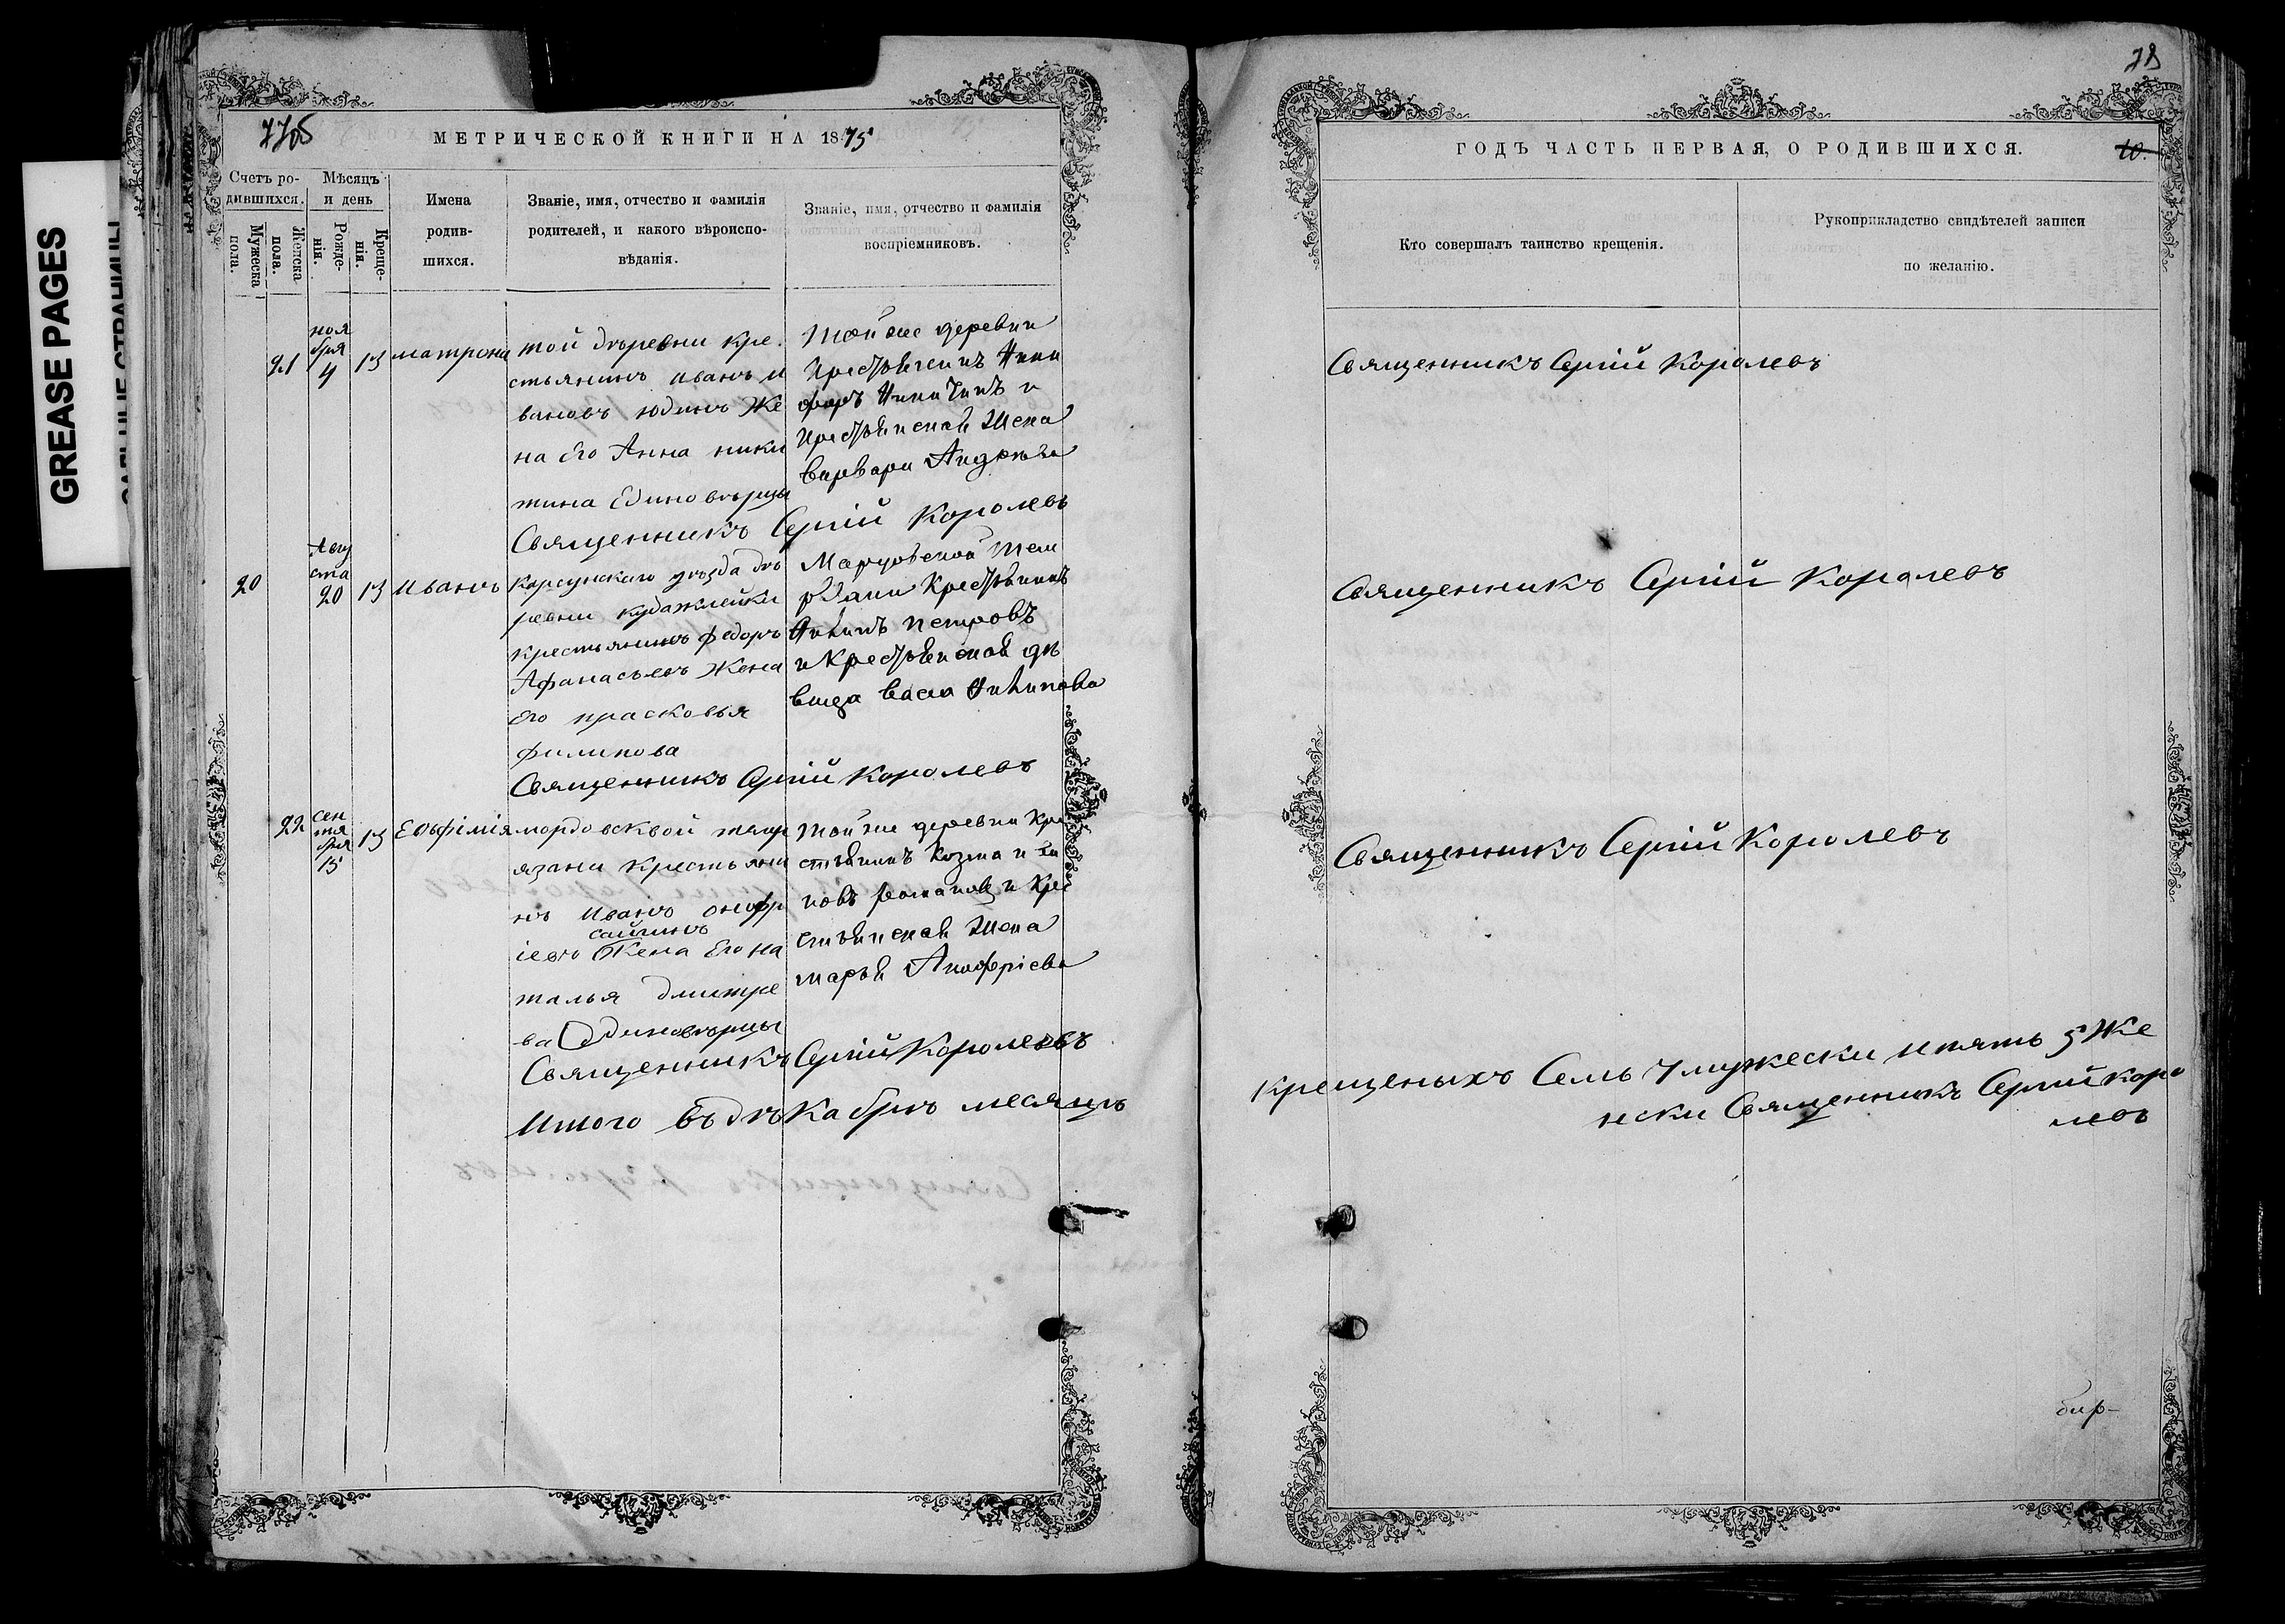 GREASE PAGES
77об
МЕТРИЧЕСКОЙ КНИГИ НА 1875
Счетъ ро-
дившихся.
Мужеска
пола.
Женска
пола.
Мѣсяцъ
и день
Рожде-
нія.
Креще-
нія.
Имена
родив-
шихся.
Званіе, имя, отчество и фамилія
родителей, и какого вѣроиспо-
вѣданія.
Званіе, имя, отчество и фамилія
воспріемниковъ.
21
ноя
бря
4
13
матрона
той дѣревни кре.
стьянинъ иванъ и
вановъ юдинъ Же
на Его Анна ники
тина Единовѣрцы
Той же деревни
Крестьянинъ Ники
форъ Никитинъ и
Крестьянская Жена
варвара
Священникъ Сергій Королевъ
20
Авгу
ста
20
13
Иванъ
Корсунскаго уѣзда дѣ
ревни кудажлейки
крестьянинъ федоръ
Афанасьевъ Жена
Его прасковья
филипова
Мордовской Тем
рязани Крестьянинъ
петровъ
и Крестьянская дѣ
вица
Священникъ Сергій Королевъ
22
сен
тя
бря
15
13
Евфимія
мордовсквой темр
язани крестьяни
нъ Иванъ онофр
сайгинъ
іевъ Жена Его на
талья дмитре
ва Единовѣрцы
Той же деревни Кре
стьянинъ Козма
новъ романовъ и Кре
стьянская Жена
марья Анофріева
Священникъ Сергій Королевъ
Итого въ дѣкабрѣ месяцѣ
78
ГОДЪ ЧАСТЬ ПЕРВАЯ, О РОДИВШИХСЯ.
10.
Кто совершалъ таинство крещенія.
Рукоприкладство свидѣтелей записи
по желанію.
Священникъ Сергій Королевъ
Священникъ Сергій Королевъ
Священникъ Сергій Королевъ
крещеныхъ Семь 7 мужески и пять 5 Же
нски Священникъ Сергій коро
левъ